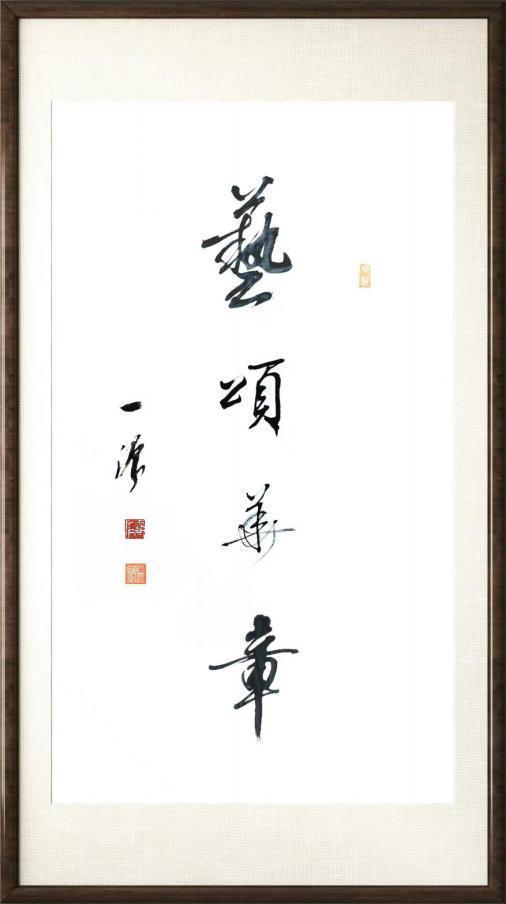 藝頌華章
一源